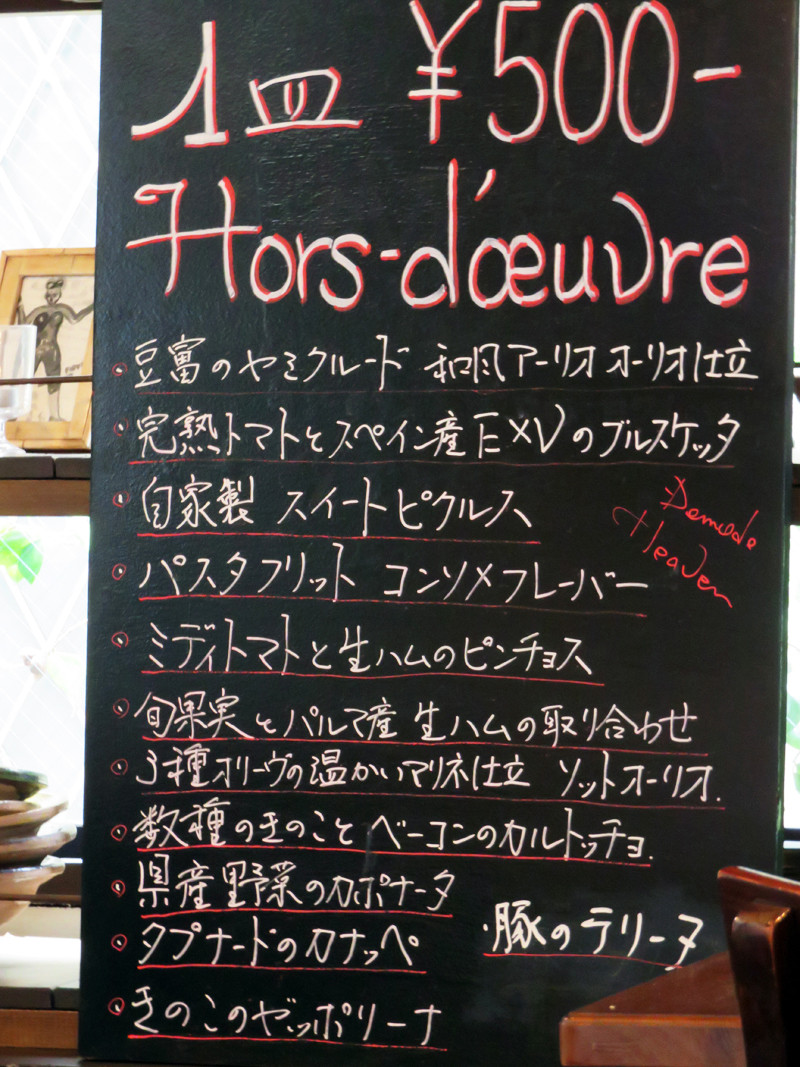 1皿 ¥500-
Hors-d'œuvre
・豆富のヤミクルード 和風アーリオオーリオ仕立
・完熟トマトとスペイン産EXVのブルスケッタ
・自家製 スイートピクルス
Demode
Heaven
・パスタフリット コンソメフレーバー
・ミディトマトと生ハムのピンチョス
・旬果実とパルマ産 生ハムの取り合わせ
・3種オリーヴの温かいマリネ仕立 ソットオーリオ.
・数種のきのことベーコンのカルトッチョ.
・県産野菜のカポナータ
・タプナードのカナッペ
・豚のテリーヌ
・きのこのゼッポリーナ